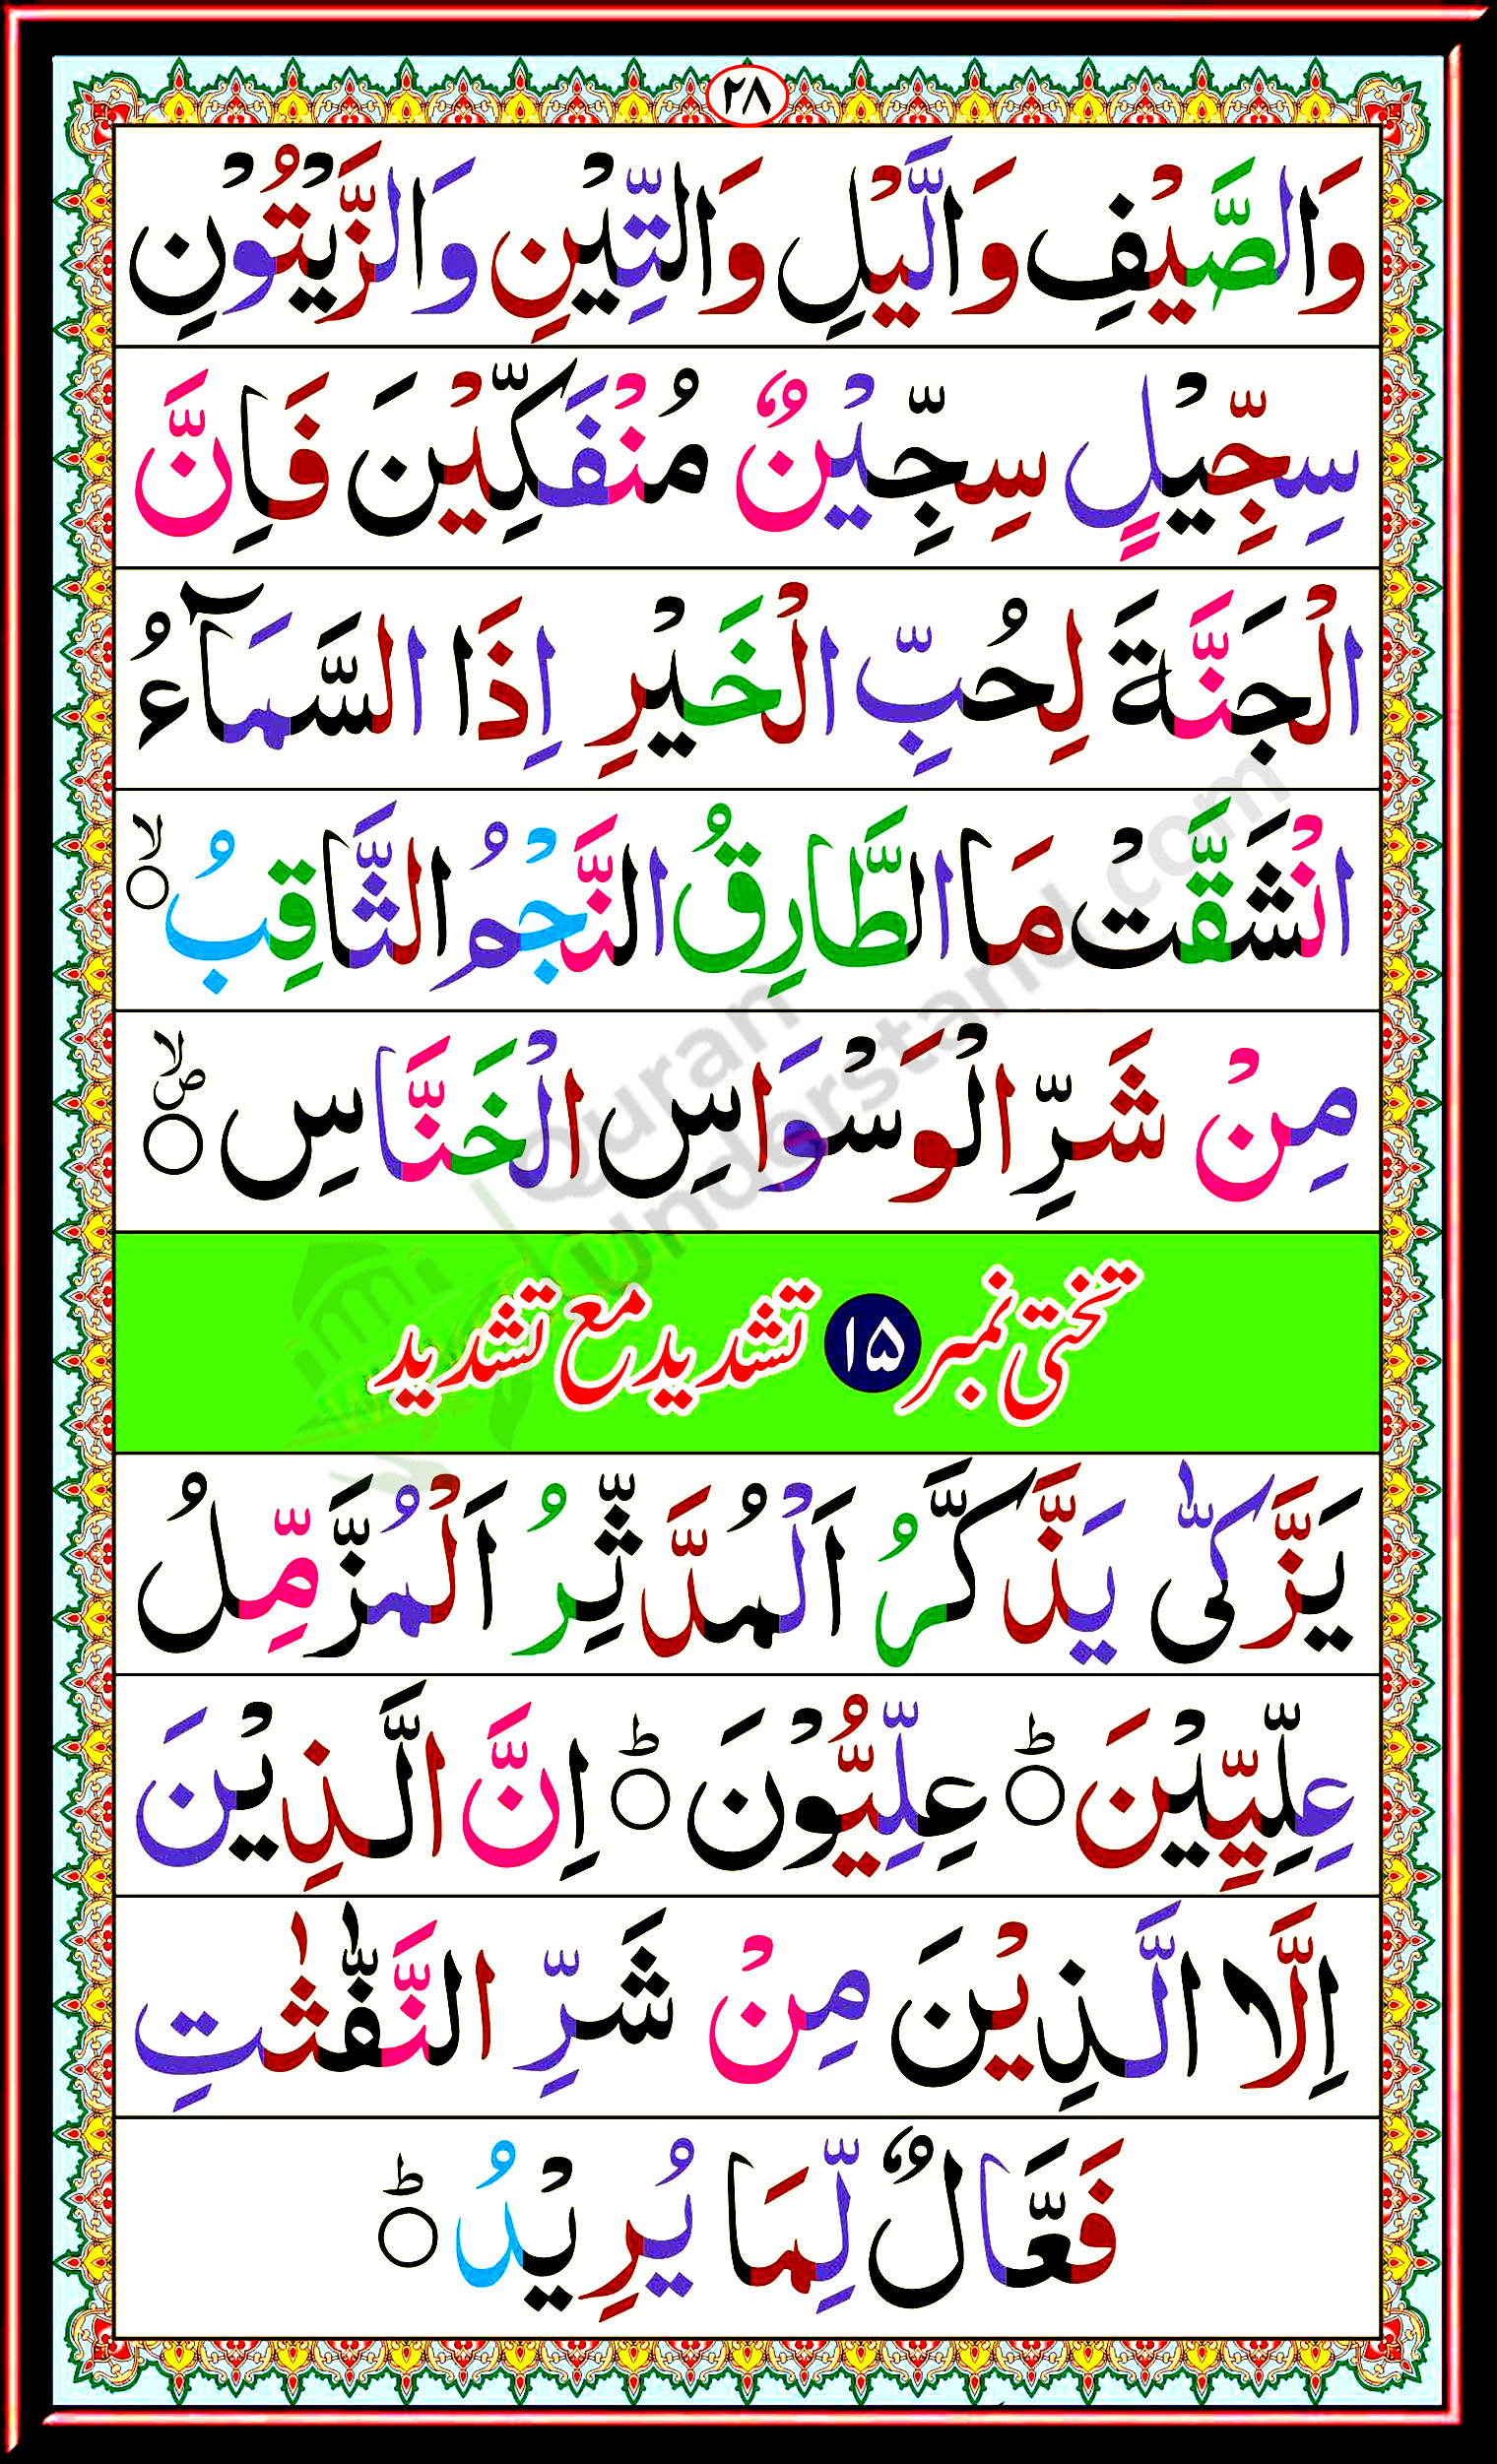 ۲۸
وَالصَّيْفِ وَالَّيْلِ وَالتِّيْنِ وَالزَّيْتُوْنِ
سِجِّيْلٍ سِجِّيْنٌ مُنْفَكِّيْنَ فَاِنَّ
الْجَنَّةَ لِحُبِّ الْخَيْرِ اِذَا السَّمَآءُ
انْشَقَّتْ مَا الطَّارِقُ النَّجْمُ الثَّاقِبُ ۙ
مِنْ شَرِّ الْوَسْوَاسِ الْخَنَّاسِ ۙ ص
تختی نمبر ۱۵ تشدید مع تشدید
يَزَّكّٰى يَذَّكَّرُ اَلْمُدَّثِّرُ اَلْمُزَّمِّلُ
عِلِّيِّيْنَ ؕ عِلِّيُّوْنَ ؕ اِنَّ الَّذِيْنَ
اِلَّا الَّذِيْنَ مِنْ شَرِّ النَّفّٰثٰتِ
فَعَّالٌ لِّمَا يُرِيْدُ ؕ
Quran
Understand.com